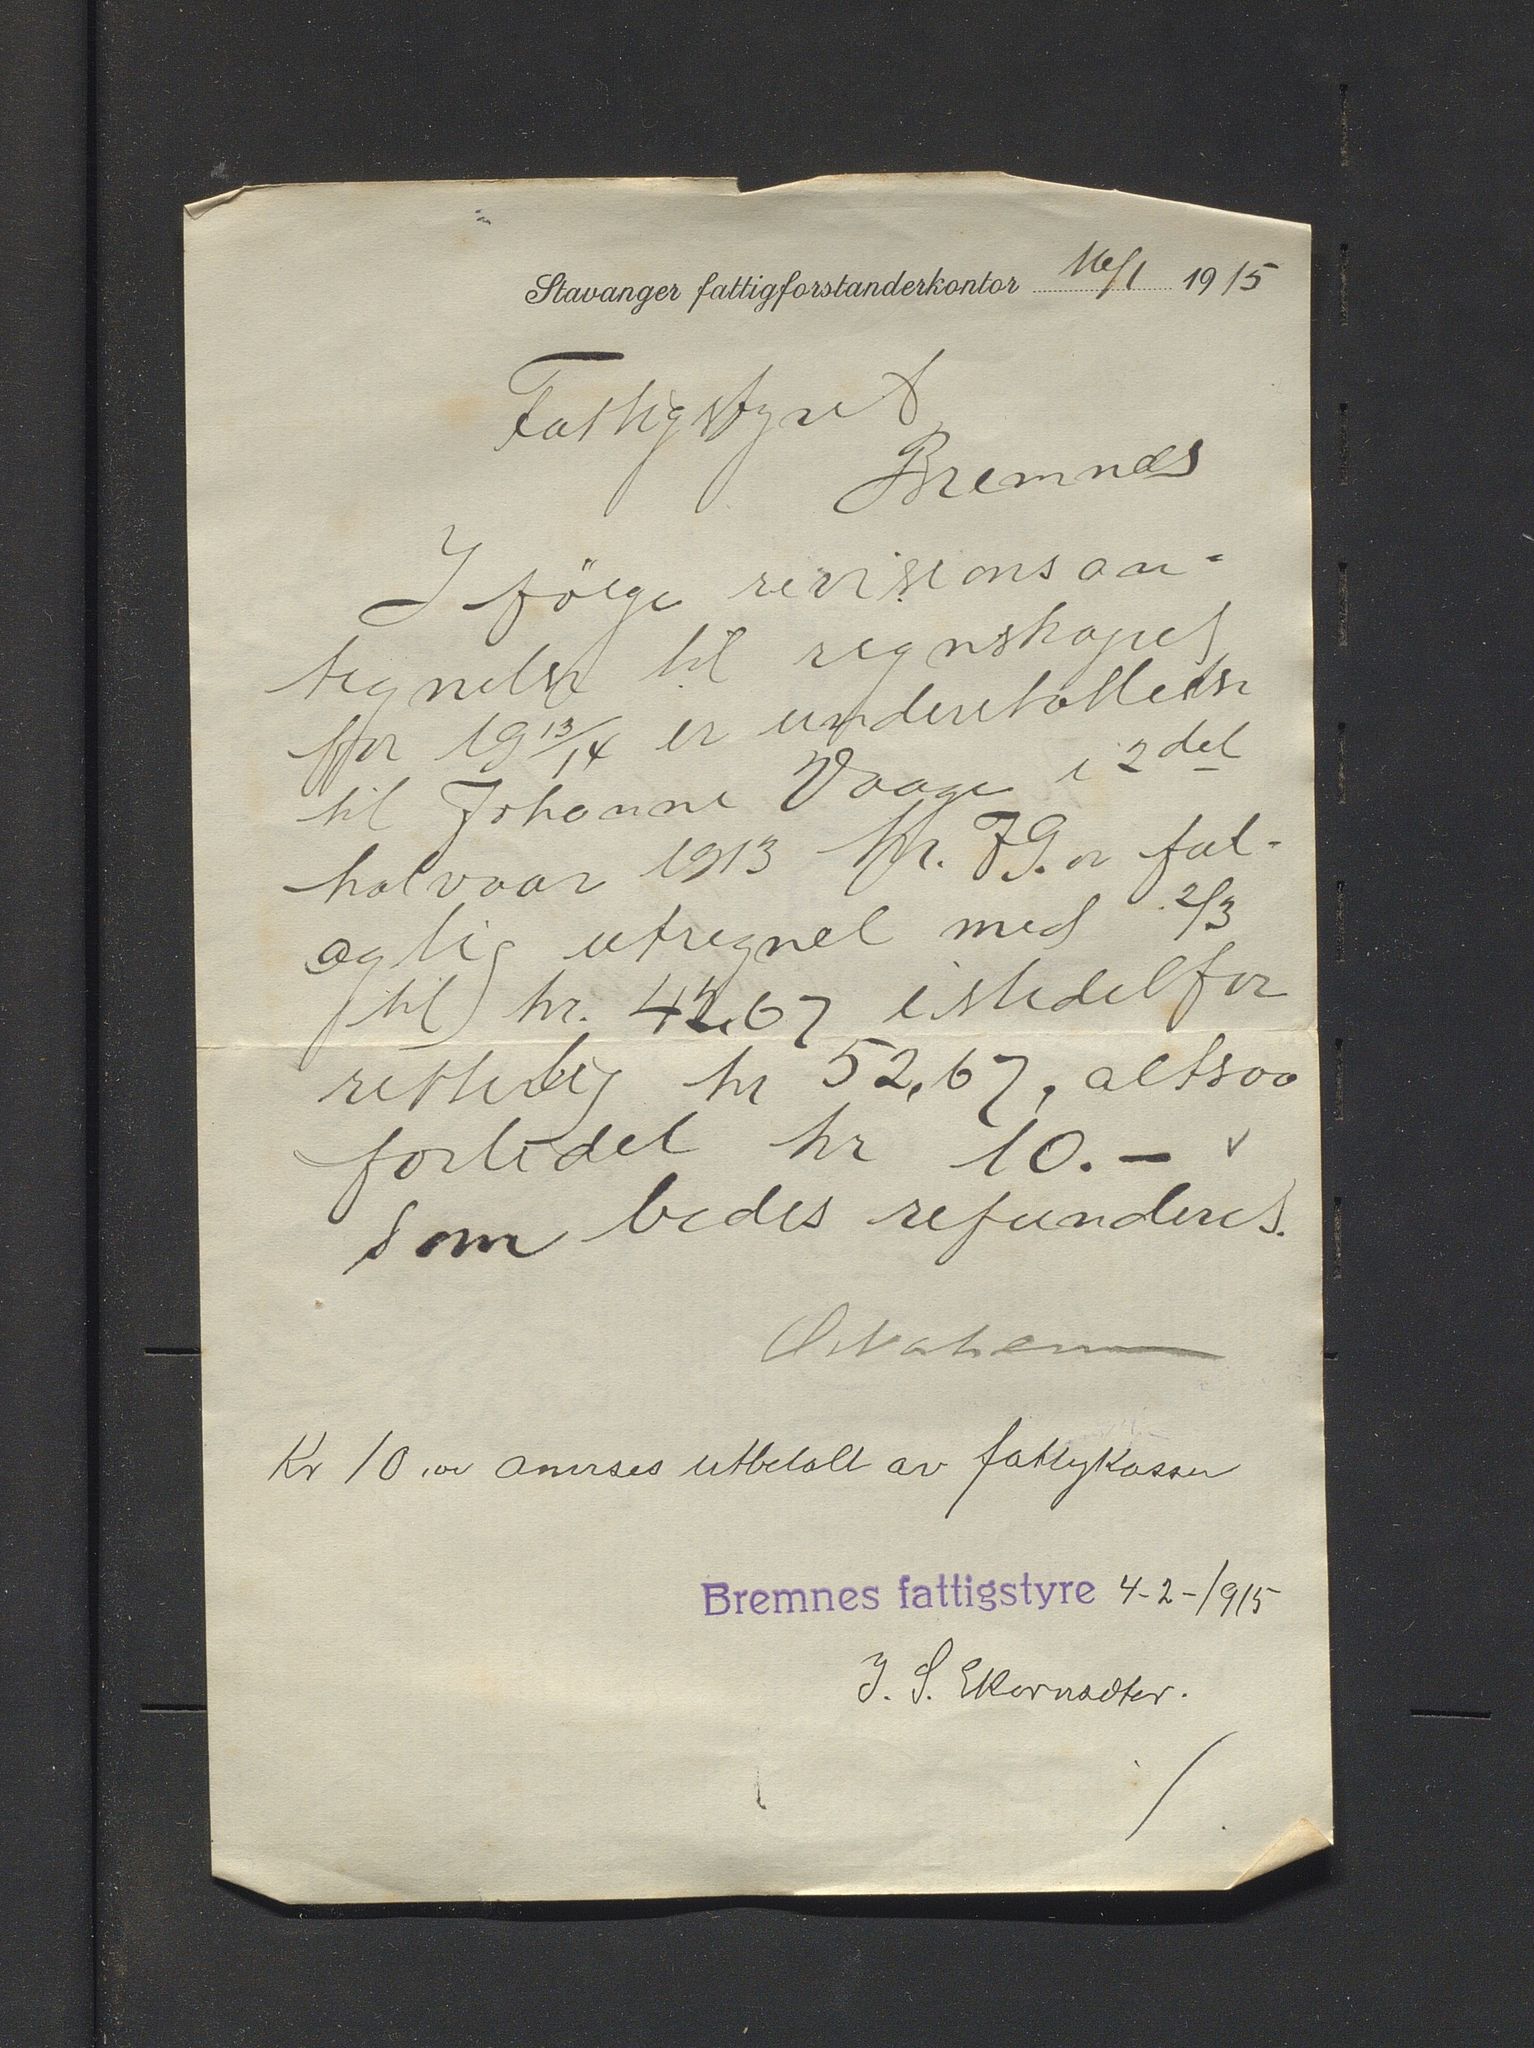 Stavanger fattigforstanderkontor 16/1 1915
Fattigstyret
Bremnes
Ifölge revisionsan-
tegnelse til regnskapet
for 1913/14 er understøttelse
til Johanne Vaage i 2det
halvaar 1913 kr. 79.00 fal-
agtig utregnet med 2/3
til kr. 42,67 istedetfor
rettelig kr 52,67, altsaa
forlidet kr 10.-
som bedes refunderet.
Kr 10,00 anvises utbetalt av fattigkassen
Bremnes fattigstyre 4-2-1915
J. S. Ekornsæter.